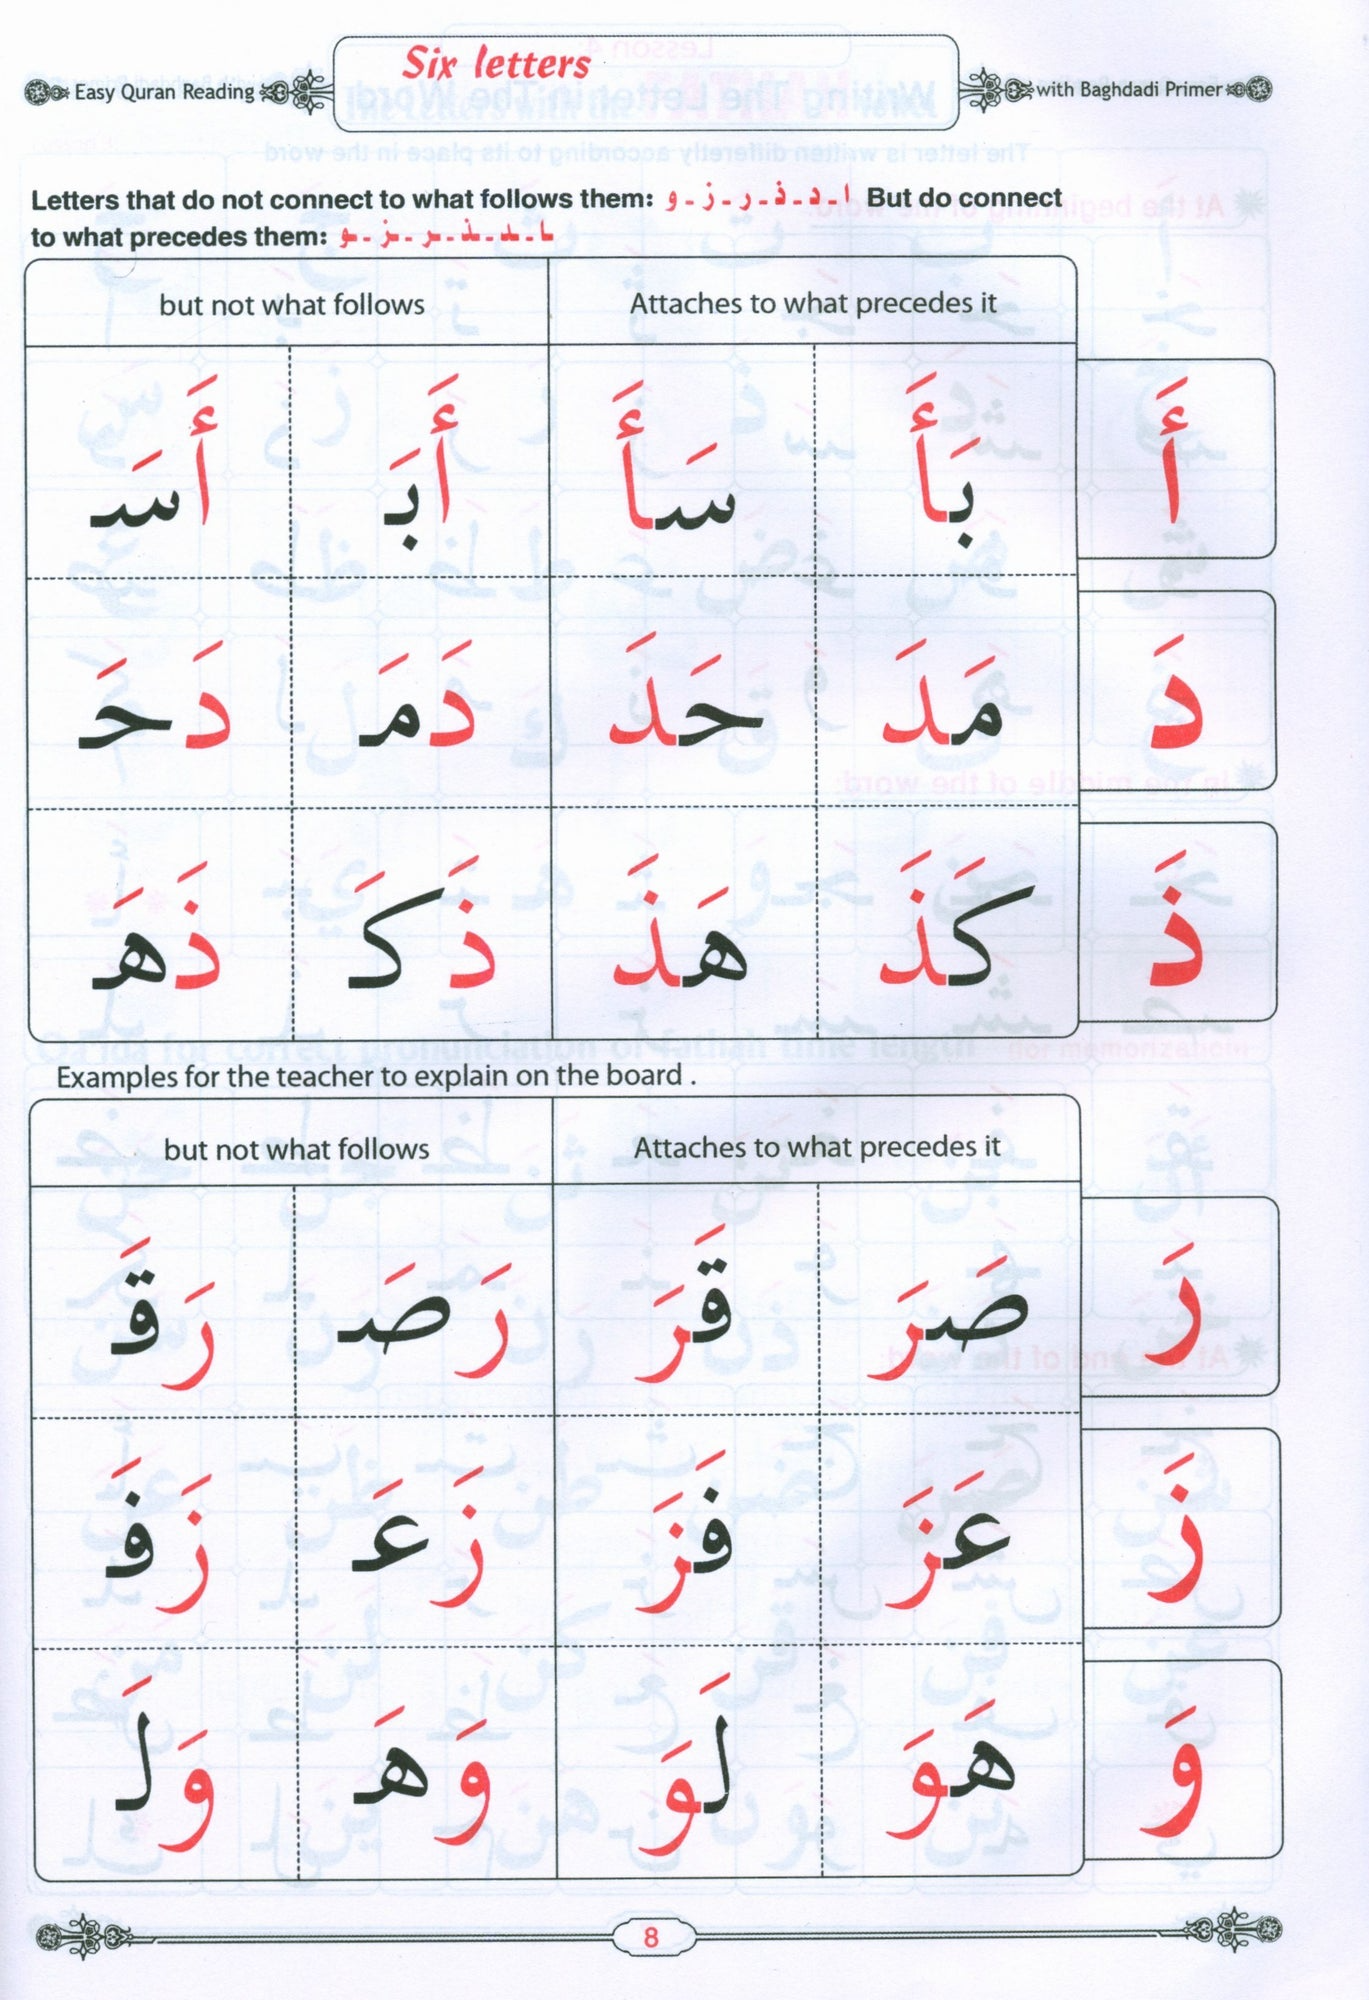 Easy Quran Reading
Six letters
with Baghdadi Primer
Letters that do not connect to what follows them: ا - د - ذ - ر - ز - و But do connect
to what precedes them: ـا - ـد - ـذ - ـر - ـز - ـو
but not what follows Attaches to what precedes it
أَ بَأَ سَأَ أَبَـ أَسَـ
دَ مَدَ حَدَ دَمَـ دَحَـ
ذَ كَذَ هَذَ ذَكَـ ذَهَـ
Examples for the teacher to explain on the board .
but not what follows Attaches to what precedes it
رَ صَرَ قَرَ رَصَـ رَقَـ
زَ عَزَ فَزَ زَعَـ زَفَـ
وَ هَوَ لَوَ وَهَـ وَلَـ
8